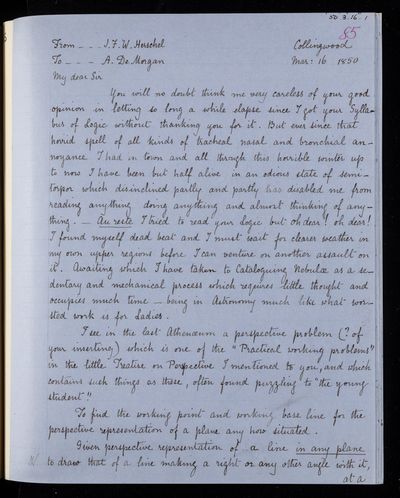 50.3.16.1
85
From - - - J. F. W. Herschel Collingwood
To - - - A. De Morgan Mar: 16 1850
My dear Sir
You will no doubt think me very careless of your good
opinion in letting so long a while elapse since I got your Sylla-
bus of Logic without thanking you for it. But ever since that
horrid spell of all kinds of tracheal nasal and bronchial an-
noyance I had in town and all through this horrible winter up
to now I have been but half alive in an odious state of semi-
torpor which disinclined partly and partly has disabled me from
reading anything doing anything and almost thinking of any-
thing. — Au reste I tried to read your Logic but oh dear! oh dear!
I found myself dead beat and I must wait for clearer weather in
my own upper regions before I can venture on another assault on
it. Awaiting which I have taken to Cataloguing Nebulæ as a se-
dentary and mechanical process which requires little thought and
occupies much time — being in Astronomy much like what wor-
sted work is for Ladies.
I see in the last Athenaeum a perspective problem (? of
your inserting) which is one of the "Practical working problems"
in the little Treatise on Perspective I mentioned to you, and which
contains such things as these, often found puzzling to "the young
student".
To find the working point and working base line for the
perspective representation of a plane any how situated.
Given perspective representation of a line in any plane
to draw that of a line making a right or any other angle with it,
at a